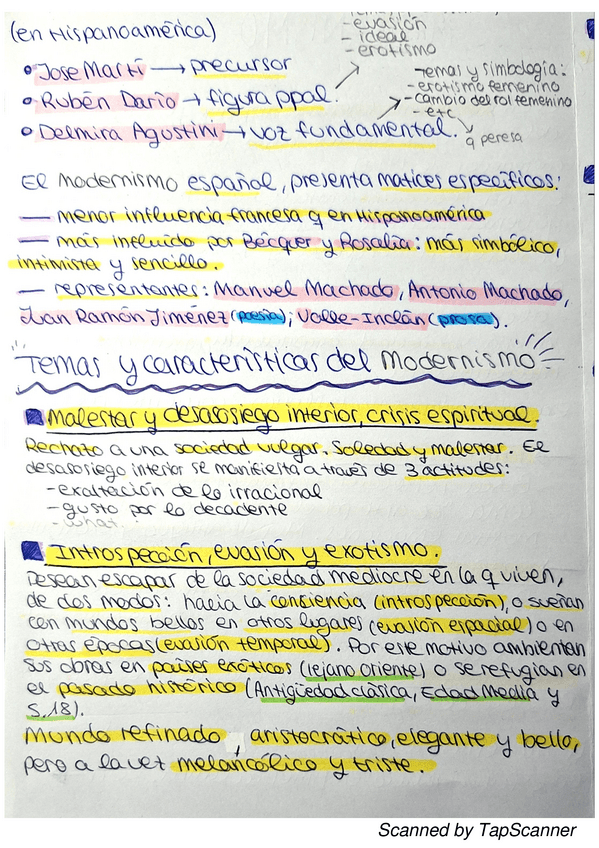 (en Hispanoamérica)
- evasión
- ideal
- erotismo
• Jose Martí → precursor
• Rubén Darío → figura ppal.
• Delmira Agustini → voz fundamental.
Temas y simbología:
- erotismo femenino
- cambio del rol femenino
- etc
El Modernismo español, presenta matices específicos:
— menor influencia francesa q en Hispanoamérica
— más influido por Bécquer y Rosalía: más simbólico,
intimista y sencillo.
— representantes: Manuel Machado, Antonio Machado,
Juan Ramón Jiménez (poesía); Valle-Inclán (prosa).
Temas y características del Modernismo
Malestar y desasosiego interior, crisis espiritual.
Rechazo a una sociedad vulgar. Soledad y malestar. El
desasosiego interior se manifiesta a través de 3 actitudes:
- exaltación de lo irracional
- gusto por lo decadente
- what.
Introspección, evasión y exotismo.
Desean escapar de la sociedad mediocre en la q viven,
de dos modos: hacia la consiencia (introspección), o sueñan
con mundos bellos en otros lugares (evasión espacial) o en
otras épocas (evasión temporal). Por este motivo ambientan
sus obras en países exóticos (lejano Oriente) o se refugian en
el pasado histórico (Antigüedad clásica, Edad Media y
S.18).
Mundo refinado, aristocrático, elegante y bello,
pero a la vez melancólico y triste.
Scanned by TapScanner